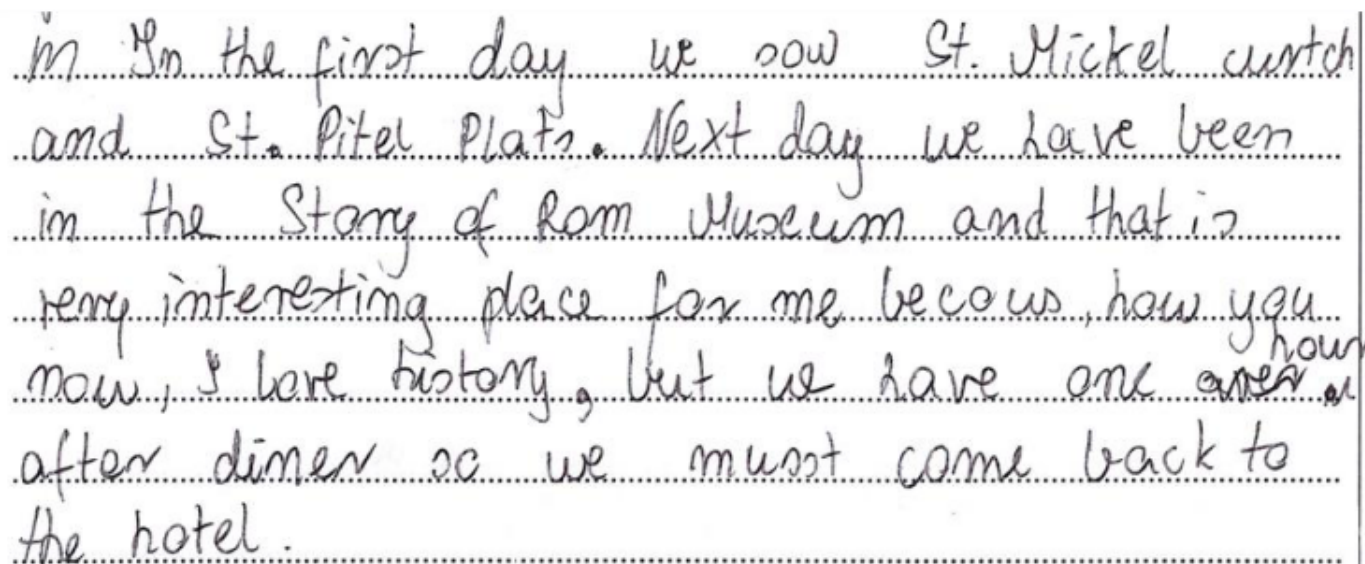 in In the first day we sow St. Mickel curtch
and St. Pitel Plats. Next day we have been
in the Story of Rom Museum and that is
very interesting place for me becous, how you
now, I love history, but we have one hour
after diner so we musst come back to
the hotel.